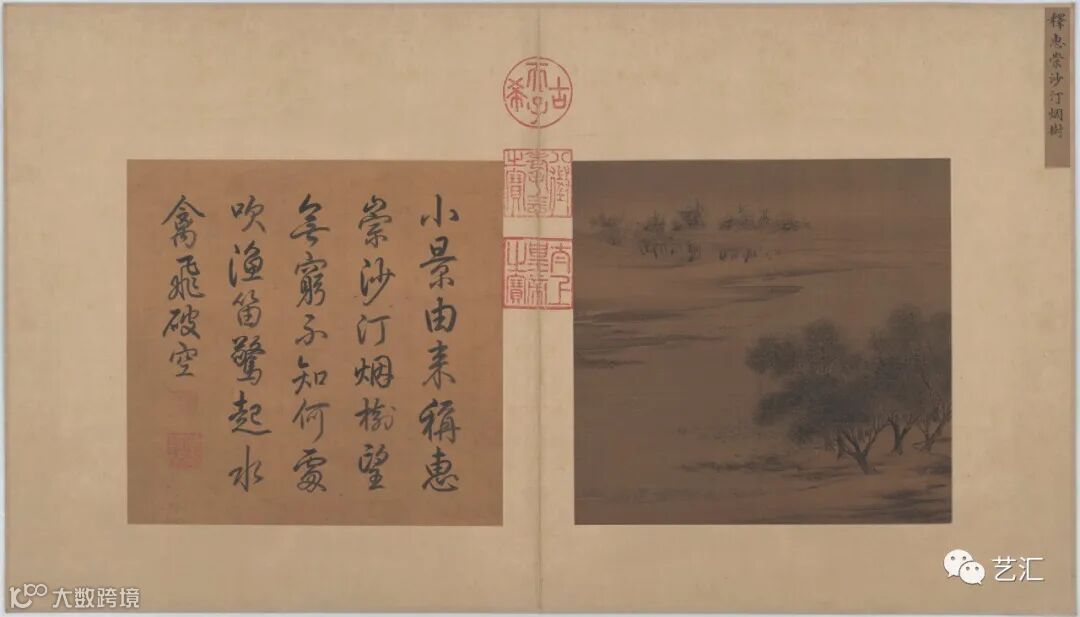 釋惠崇沙汀烟樹
古希天子
八徵耄念之寶
太上皇帝之寶
小景由来稱惠
崇沙汀烟樹望
無窮不知何處
吹漁笛驚起水
禽飛破空
艺汇
大数跨境